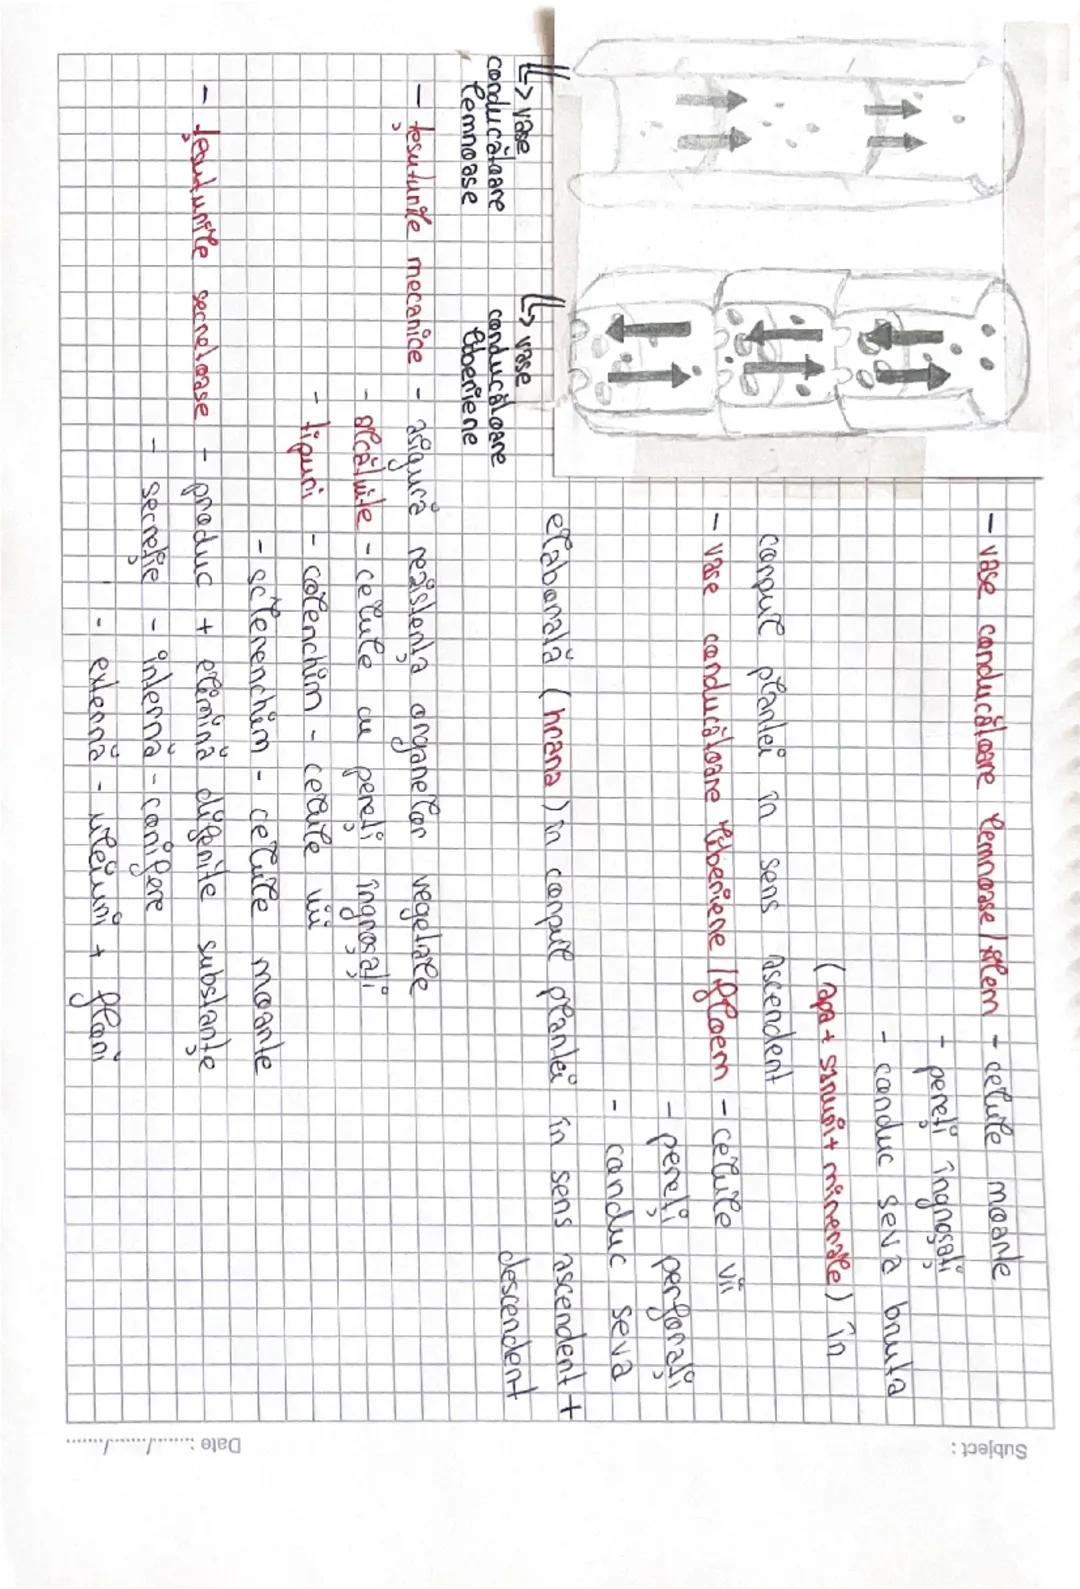 Subject :
Date : ....../....../......
- vase conducătoare lemnoase / xilem - celule moarte
- pereți îngroșați
- conduc seva bruta
(apa + săruri + minerale) în
corpul plantei in sens ascendent
- vase conducătoare liberiene / floem - celule vii
- pereți perforați
- conduc seva
elaborată (hrana) in corpul plantei in sens ascendent +
descendent
↳ vase
conducătoare
lemnoase
↳ vase
conducătoare
liberiene
- țesuturile mecanice - asigură rezistența organelor vegetale
- alcătuite - celule cu pereți îngroșați
- tipuri - colenchim - celule vii
- sclerenchim - celule moarte
- țesuturile secretoase - produc + elimină diferite substanțe
- secreție - internă - conifere
- externă - uleiuri + flori